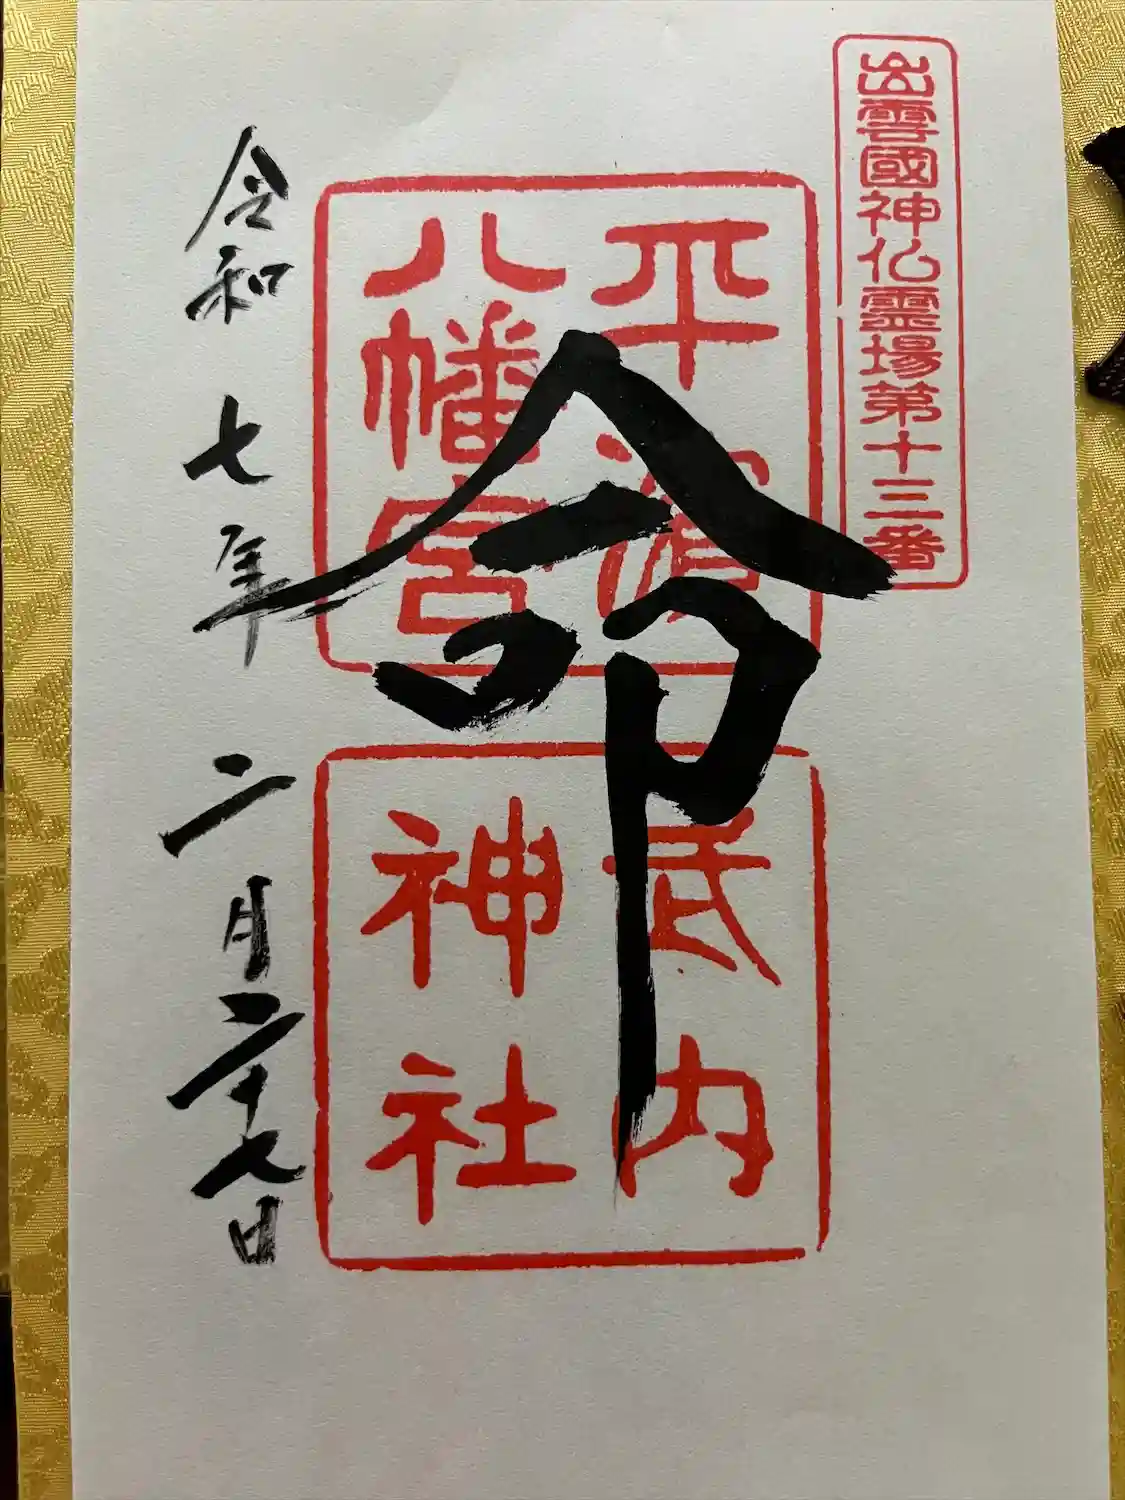 出雲國神仏霊場第十三番
命
平濱
八幡宮
武内
神社
令和七年二月二十七日